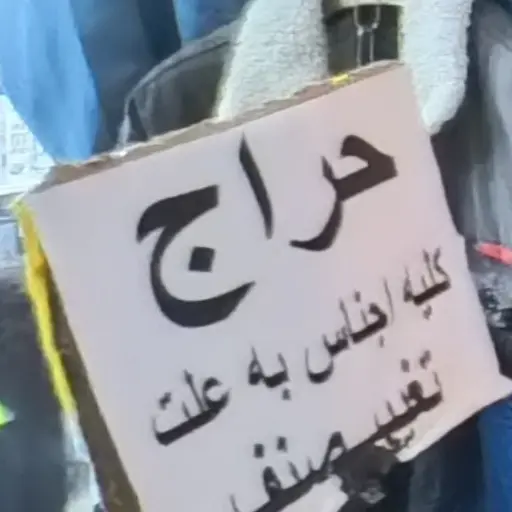 حراج
کلیه اجناس به علت
تغییر صنف